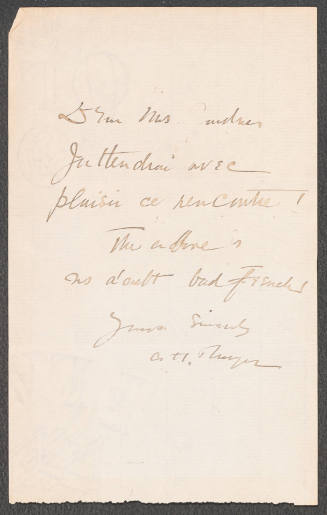 Dear Mrs Gardner
J'attendrai avec
plaisir ce rencontre!
The above is
no doubt bad french
Yours Sincerely
A. H. Thayer